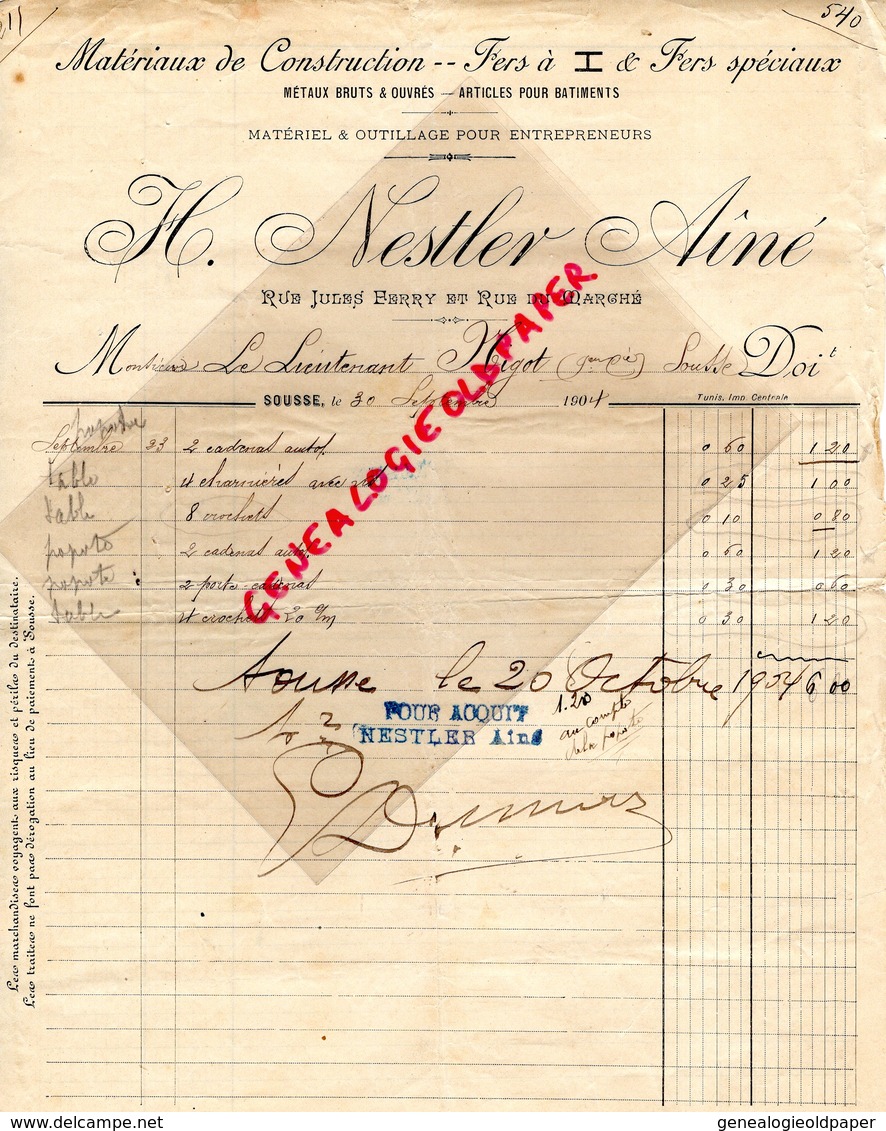 211
540
Matériaux de Construction -- Fers à I & Fers spéciaux
MÉTAUX BRUTS & OUVRÉS — ARTICLES POUR BATIMENTS
MATÉRIEL & OUTILLAGE POUR ENTREPRENEURS
H. Nestler Aîné
RUE JULES FERRY ET RUE DU MARCHÉ
Monsieur Le Lieutenant Higot Sousse Doit
SOUSSE, le 30 Septembre 1904
Tunis. Imp. Centrale
popote
Septembre 23 2 cadenas autos. 0 60 1 20
table 4 charnières avec vis 0 25 1 00
table 8 crochets 0 10 0 80
popote 2 cadenas autos. 0 60 1 20
popote 2 porte-cadenas 0 30 0 60
table 4 crochets 20 c/m 0 30 1 20
Sousse le 20 Octobre 1904 6 00
POUR ACQUIT
NESTLER Ainé
1.20
au compte
de la popote
Les marchandises voyagent aux risques et périls du destinataire.
Les traites ne font pas dérogation au lieu de paiements à Sousse.
GENEALOGIEOLDPAPER.
www.delcampe.net
genealogieoldpaper